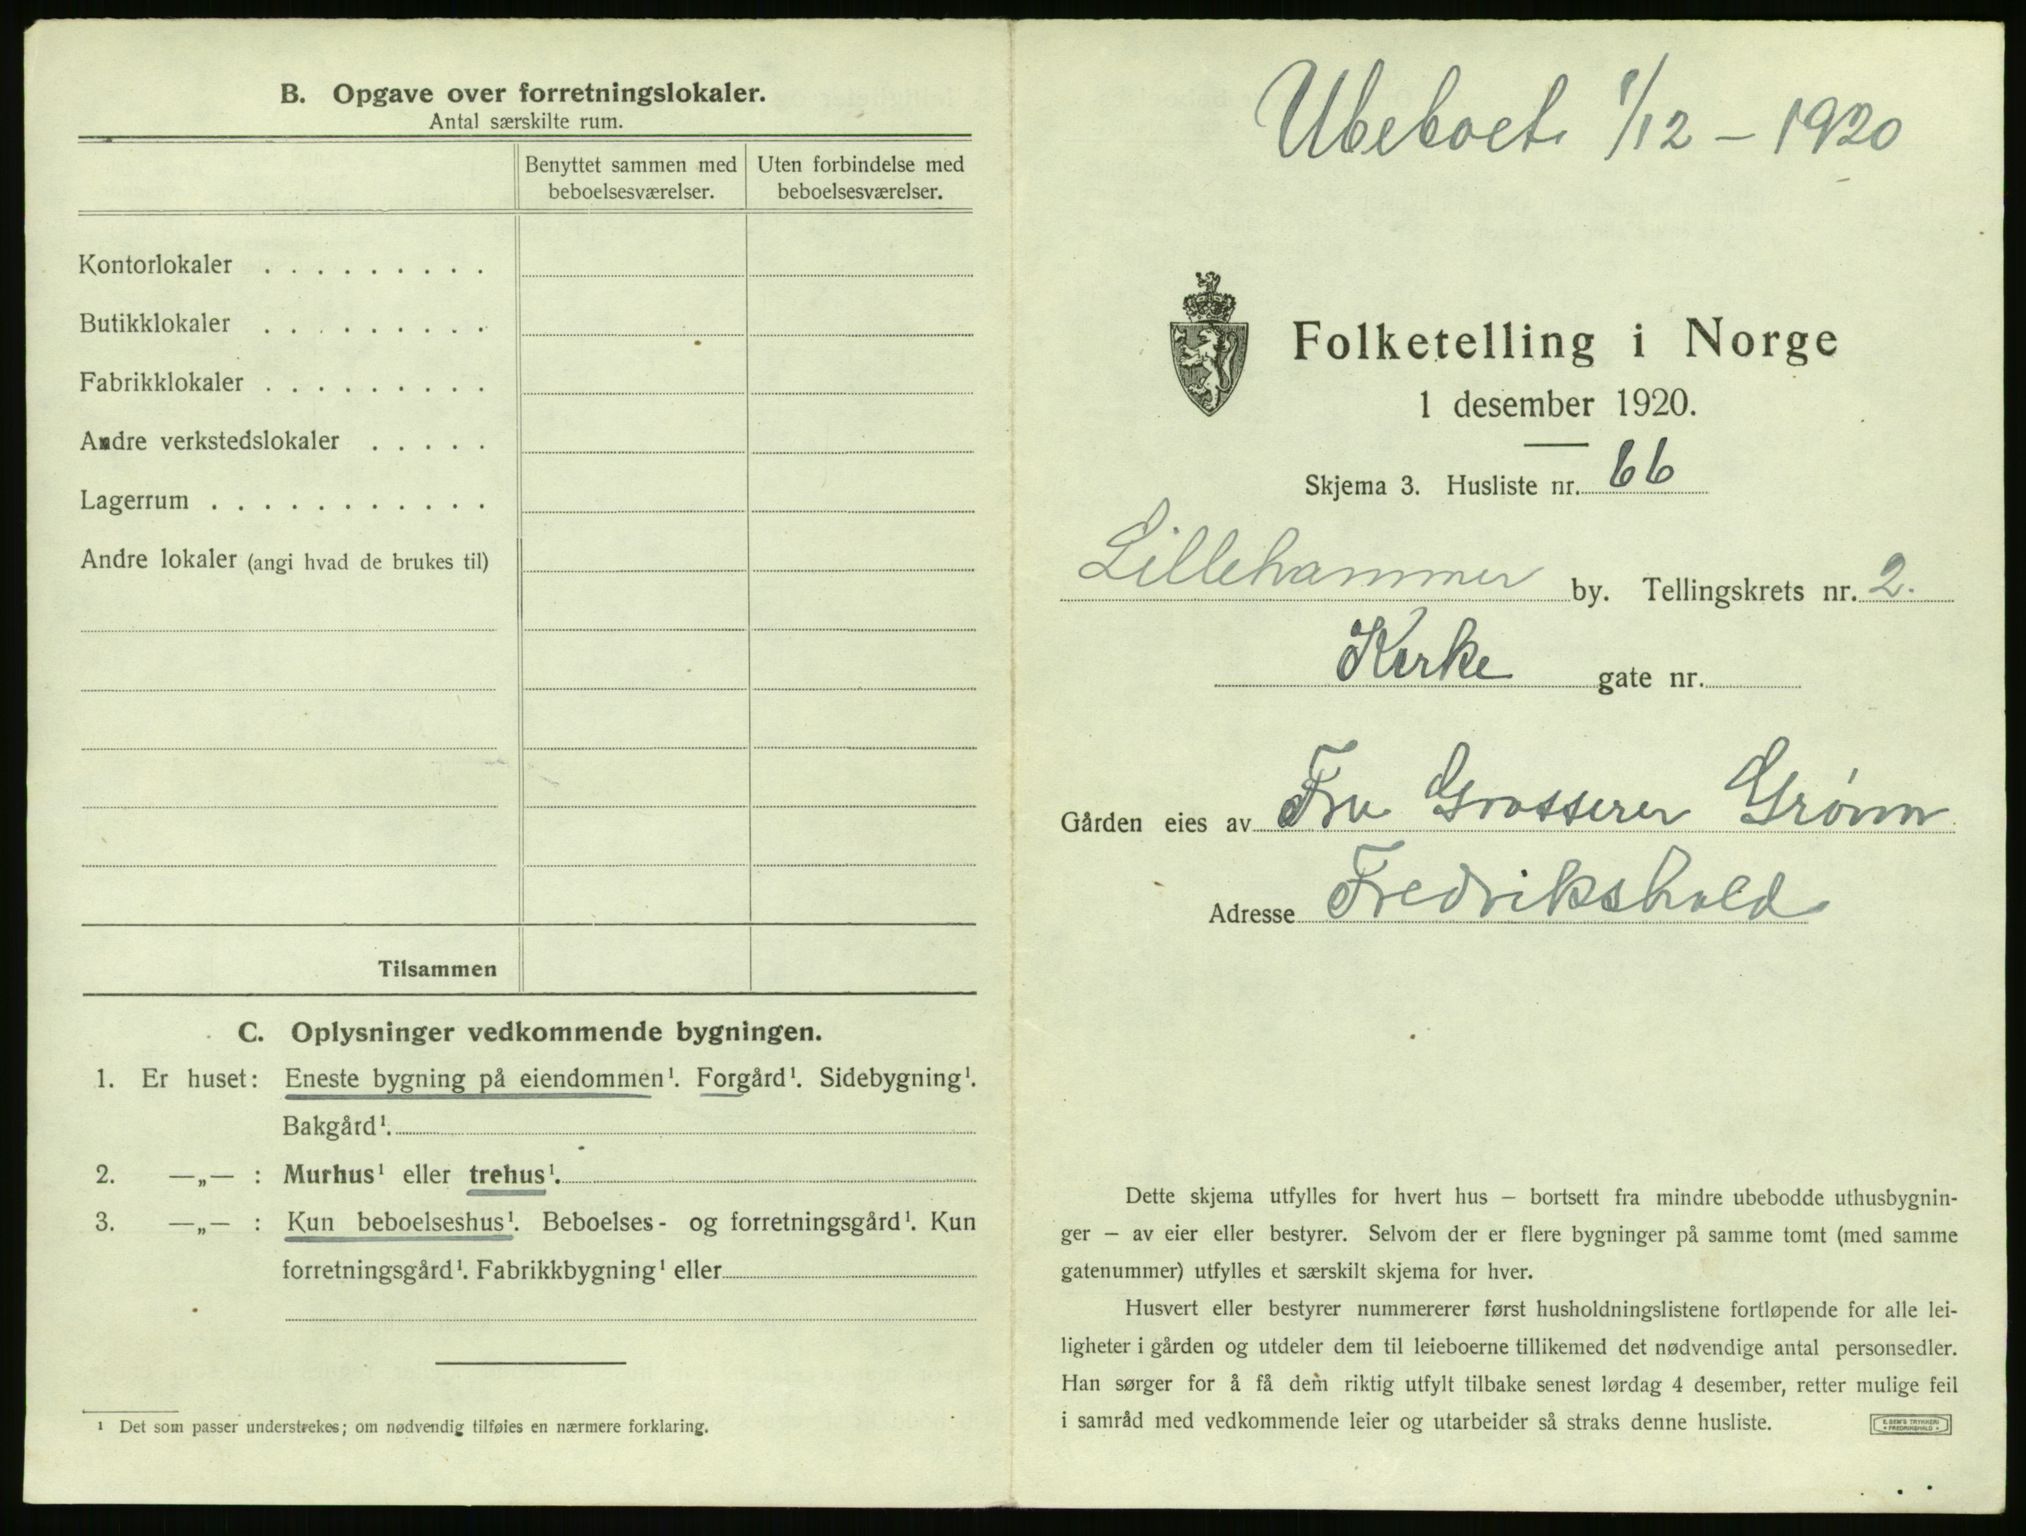 B. Opgave over forretningslokaler.
Antal særskilte rum.
Benyttet sammen med beboelsesværelser.
Uten forbindelse med beboelsesværelser.
Kontorlokaler . . . . . . . . .
Butikklokaler . . . . . . . . .
Fabrikklokaler . . . . . . . . .
Andre verkstedslokaler . . . . .
Lagerrum . . . . . . . . . . .
Andre lokaler (angi hvad de brukes til)
Tilsammen
C. Oplysninger vedkommende bygningen.
1. Er huset: Eneste bygning på eiendommen¹. Forgård¹. Sidebygning¹.
Bakgård¹.
2. —„— : Murhus¹ eller trehus¹.
3. —„— : Kun beboelseshus¹. Beboelses- og forretningsgård¹. Kun
forretningsgård¹. Fabrikkbygning¹ eller
¹ Det som passer understrekes; om nødvendig tilføies en nærmere forklaring.
Ubeboet. 1/12 – 1920
Folketelling i Norge
1 desember 1920.
Skjema 3. Husliste nr. 66
Lillehammer by. Tellingskrets nr. 2.
Kirke gate nr.
Gården eies av Fru Grosserer Grønn
Adresse Fredrikshald
Dette skjema utfylles for hvert hus – bortsett fra mindre ubebodde uthusbygnin-
ger – av eier eller bestyrer. Selvom der er flere bygninger på samme tomt (med samme
gatenummer) utfylles et særskilt skjema for hver.
Husvert eller bestyrer nummererer først husholdningslistene fortløpende for alle lei-
ligheter i gården og utdeler dem til leieboerne tillikemed det nødvendige antal personsedler.
Han sørger for å få dem riktig utfylt tilbake senest lørdag 4 desember, retter mulige feil
i samråd med vedkommende leier og utarbeider så straks denne husliste.
E. SEM'S TRYKKERI
FREDRIKSHALD